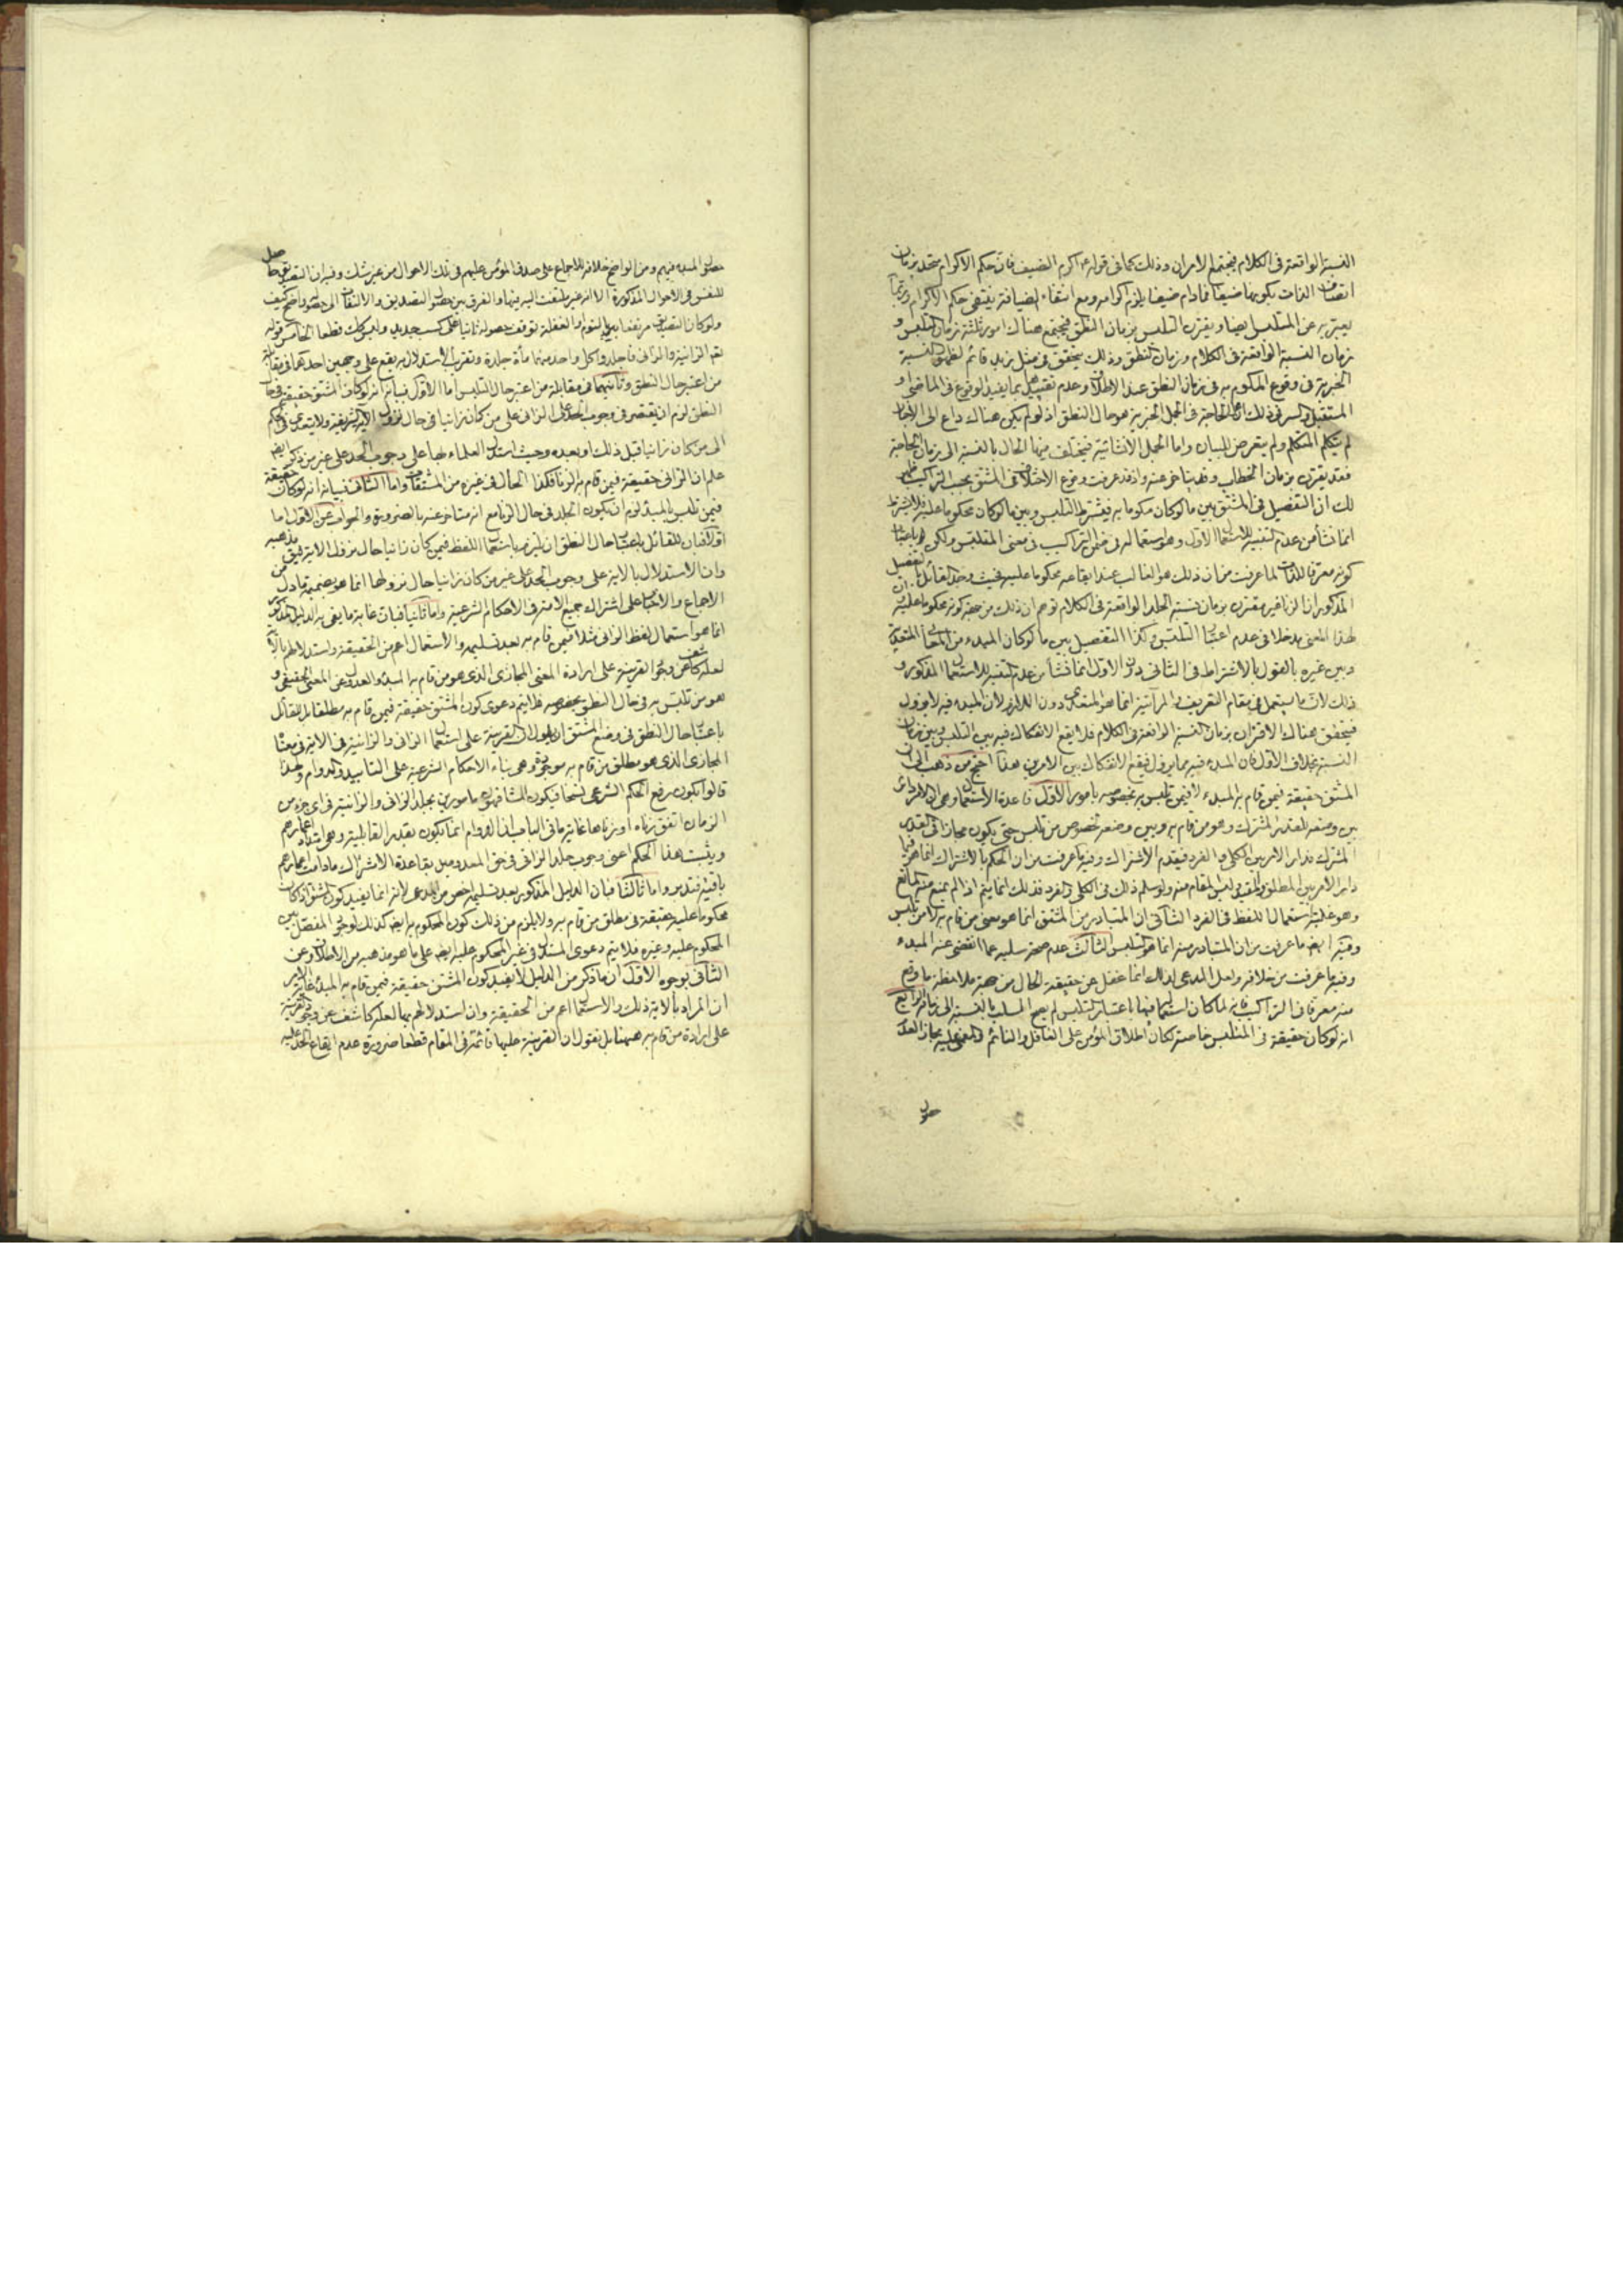 النسبة الواقعة فى الكلام فيجتمع الامران وذلك كما فى قوله اكرم الضيف فان حكم الاكرام متحد بزمان
اتصاف الذات بكونها ضيفا فما دام ضيفا يلزم اكرامه ومع انتفاء الضيافة ينتفى حكم الاكرام وربما
يعبر به عن المتلبس ايضا ويقترن التلبس بزمان النطق فيجتمع هناك امور ثلثة زمان التلبس و
زمان النسبة الواقعة فى الكلام وزمان النطق وذلك يتحقق فى مثل زيد قائم لظهور النسبة
الخبرية فى وقوع المحكوم به فى زمان النطق عند الاطلاق وعدم تقييدها بما يفيد الوقوع فى الماضى و
المستقبل والسر فى ذلك ان الحاجة فى الجمل الخبرية هو حال النطق اذ لو لم يكن هناك داع الى الاخبار
لم يتكلم المتكلم ولم يتعرض للبيان واما الجمل الانشائية فيختلف فيها الحال بالنسبة الى زمان الحاجة
فقد يقترن بزمان الخطاب وقد يتاخر عنه واذ قد عرفت وقوع الاختلاف فى المشتق بحسب التراكيب ظهر
لك ان التفصيل فى المشتق بين ما لو كان محكوما به فيشترط التلبس وبين ما لو كان محكوما عليه فلا يشترط
انما نشأ من عدم التنبه للاستعمال الاول وهو استعماله فى ضمن التراكيب فى معنى المتلبس ولكن باعتبار
كونه معرفا للذات لما عرفت من ان ذلك هو الغالب عند ايقاعه محكوما عليه فحيث وجد القائل بالتفصيل
المذكور ان الزنا غير مقترن بزمان نسبة الجلد الواقعة فى الكلام توهم ان ذلك من جهة كونه محكوما عليه وان
لهذا المعنى مدخلا فى عدم اعتبار التلبس وكذا التفصيل بين ما لو كان المبدء من المبادى المتعدية
وبين غيره بالقول بالاشتراط فى الثانى دون الاول انما نشأ من عدم التنبه للاستعمال المذكور و
ذلك لان ما يستعمل فى مقام التعريف والمرآتية انما هو المتعدى دون اللازم لان المبدء فيه لا يزول
فيتحقق هناك الاقتران بزمان النسبة الواقعة فى الكلام فلا يقع الانفكاك فيه بين التلبس وبين زمان
النسبة بخلاف الاول فان المبدء فيه مما يزول فيقع الانفكاك بين الامرين هذا احتج من ذهب الى ان
المشتق حقيقة فيمن قام به المبدء لا فيمن تلبس به بخصوصه بامور الاول قاعدة الاستعمال وهى ان الامر دائر
بين وضعه للقدر المشترك وهو من قام به وبين وضعه لخصوص من تلبس حتى يكون مجازا فى القدر
المشترك مدار الامر بين الكلى والفرد فيقدم الاشتراك وفيه ما عرفت من ان الحكم بالاشتراك انما هو فيما
دار الامر بين المطلق والمقيد وليس المقام منه ولو سلم ذلك فى الكلى والفرد فذلك انما يتم اذا لم يمنع منه مانع
وهو غلبة استعمال اللفظ فى الفرد الثانى ان المتبادر من المشتق انما هو معنى من قام به لا من تلبس
وفيه ايضا ما عرفت من ان المتبادر منه انما هو المتلبس الثالث عدم صحة سلبه عما انقضى عنه المبدء
وفيه ما عرفت من خلافه ولعل المدعى لذلك انما غفل عن حقيقة الحال من جهة ملاحظة ما وقع
منه معرفا فى التراكيب فانه لما كان استعماله فيها باعتبار التلبس لم يصح السلب بالنسبة الى زمانه الرابع
انه لو كان حقيقة فى المتلبس خاصة لكان اطلاق المؤمن على الغافل والنائم والمغمى عليه مجازا لعدم
حصول
حصول المبدء فيهم ومن الواضح خلافه للاجماع على صدق المؤمن عليهم فى تلك الاحوال من غير شك وفيه ان التصديق حاصل
للنفس فى الاحوال المذكورة الا انه غير ملتفت اليه فيها والفرق بين حصول التصديق والالتفات الى حصوله واضح كيف
ولو كان التصديق مرتفعا بمجرد النوم او الغفلة لتوقف حصوله ثانيا على كسب جديد وليس كك قطعا الخامس قوله
تعالى الزانية والزانى فاجلدوا كل واحد منهما مأة جلدة وتقريب الاستدلال به يقع على وجهين احدهما فى مقابلة
من اعتبر حال النطق وثانيهما فى مقابلة من اعتبر حال التلبس اما الاول فبيانه انه لو كان المشتق حقيقة فى حال
النطق لزم ان يقتصر فى وجوب الحد على الزانى على من كان زانيا فى حال نزول الآية الشريفة ولا يتعدى فى الحكم
الى من كان زانيا قبل ذلك او بعده وحيث استدل العلماء بها على وجوب الحد على غير من ذكر ايضا
علم ان الزانى حقيقة فيمن قام به الزنا فكذا الحال فى غيره من المشتقات واما الثانى فبيانه انه لو كان حقيقة
فيمن تلبس بالمبدء لزم ان يكون الجلد فى حال الزنا مع انه متاخر عنه بالضرورة والجواب عن الاول اما
اولا فبان للقائل باعتبار حال النطق ان يلتزم باستعمال اللفظ فيمن كان زانيا حال نزول الاية على مذهبه
وان الاستدلال بالاية على وجوب الحد على غير من كان زانيا حال نزولها انما هو بضميمة ما دل من
الاجماع والاخبار على اشتراك جميع الامة فى الاحكام الشرعية واما ثانيا فبان غاية ما يفى به الدليل المذكور
انما هو استعمال لفظ الزانى مثلا فيمن قام به بعد تسليمه والاستعمال اعم من الحقيقة واستدلالهم بالاية
لعله كاشف عن وجود القرينة على ارادة المعنى المجازى الذى هو من قام به المبدء والعدول عن المعنى الحقيقى و
هو من تلبس به فى حال النطق بخصوصه فلا يتم دعوى كون المشتق حقيقة فيمن قام به مطلقا بل للقائل
باعتبار حال النطق فى وضع المشتق ان يقول ان القرينة على استعمال الزانى والزانية فى الاية فى معناه
المجازى الذى هو مطلق من قام به موجودة وهى بناء الاحكام الشرعية على التابيد والدوام ولهذا
قالوا بكون رفع الحكم الشرعى نسخا فيكون المشافهون مامورين بجلد الزانى والزانية فى اى جزء من
الزمان اتفق زناه او زناها غاية ما فى الباب ان الدوام انما يكون بقدر القابلية وهو امتداد اعمارهم
ويثبت هذا الحكم اعنى وجوب جلد الزانى فى حق المعدومين بقاعدة الاشتراك ما دامت اعمارهم
باقية فتدبر واما ثالثا فبان الدليل المذكور بعد تسليمه اخص من المدعى لانه انما يفيد كون المشتق اذا كان
محكوما عليه حقيقة فى مطلق من قام به ولا يلزم من ذلك كون المحكوم به ايضا كذلك لوجود المفصل بين
المحكوم عليه وغيره فلا يتم دعوى المستدل فى غير المحكوم عليه ايضا على ما هو مذهبه من الاطلاق وعن
الثانى بوجوه الاول ان ما ذكر من الدليل لا يفيد كون المشتق حقيقة فيمن قام به المبدء غاية الامر
ان المراد بالاية ذلك والاستعمال اعم من الحقيقة وان استدلالهم بها لعله كاشف عن وجود القرينة
على ارادة من قام به ههنا بل نقول ان القرينة عليها قائمة فى المقام قطعا ضرورة عدم ايقاع الحد عليه